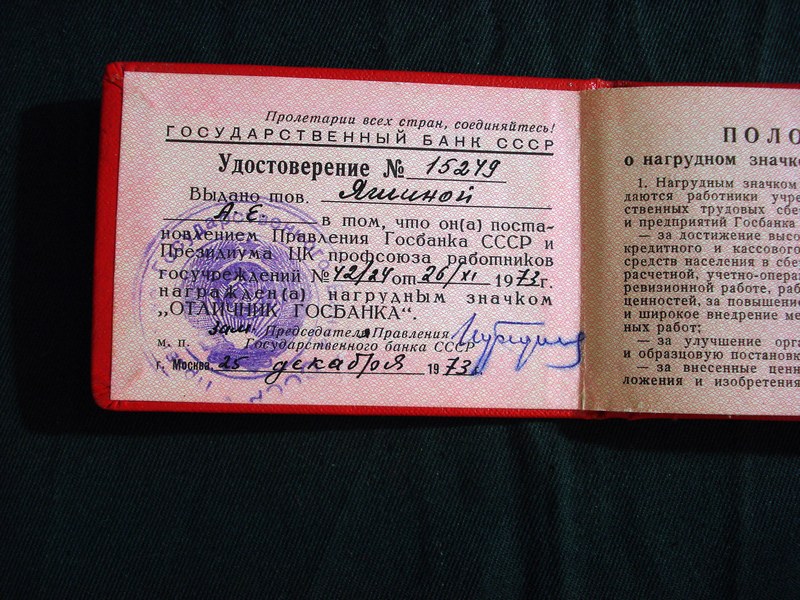 Пролетарии всех стран, соединяйтесь!
ГОСУДАРСТВЕННЫЙ БАНК СССР
Удостоверение № 15279
Выдано тов. Яшиной
А. Е. в том, что он(а) поста-
новлением Правления Госбанка СССР и
Президиума ЦК профсоюза работников
госучреждений № 42/24 от 26/XI 1973 г.
награжден(а) нагрудным значком
„ОТЛИЧНИК ГОСБАНКА“.
зам Председателя Правления
м. п. Государственного банка СССР
г. Москва, 25 декабря 1973 г.
ПОЛО
о нагрудном значк
1. Нагрудным значком
даются работники учре
ственных трудовых сбе
и предприятий Госбанка
— за достижение высо
кредитного и кассового
средств населения в сбе
расчетной, учетно-опера
ревизионной работе, раб
ценностей, за повышение
и широкое внедрение ме
ных работ;
— за улучшение орга
и образцовую постановк
— за внесенные ценн
ложения и изобретения